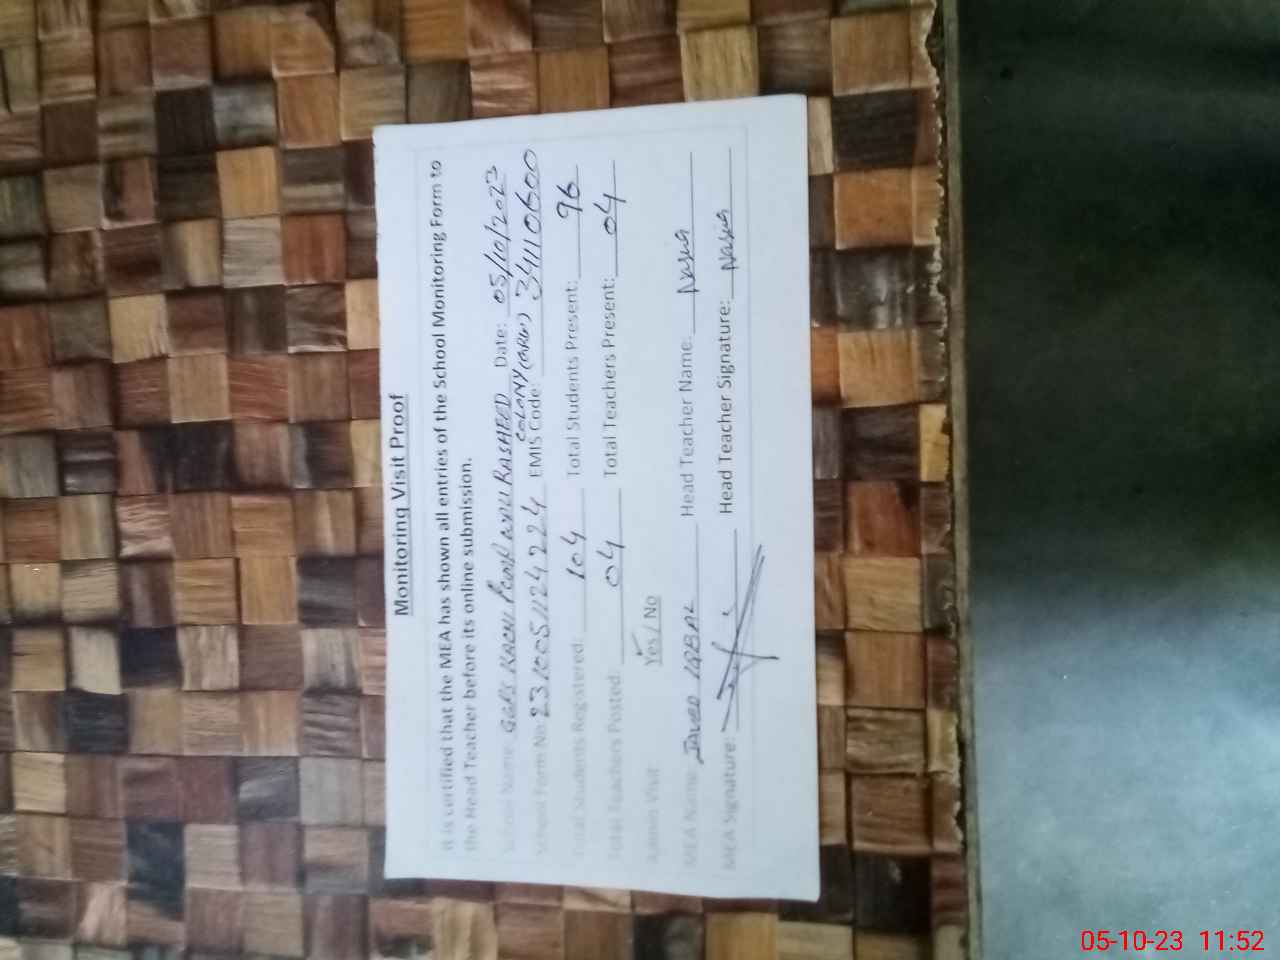 Monitoring Visit Proof
It is certified that the MEA has shown all entries of the School Monitoring Form to
the Head Teacher before its online submission.
School Name: GGPS KACHI Date: 05/10/2023
RASHEED COLONY (GRW)
School Form No EMIS Code: 34110600
Total Students Registered: 104 Total Students Present: 96
Total Teachers Posted: 04 Total Teachers Present: 04
Admin Visit: Yes / No
MEA Name: JAVED IQBAL Head Teacher Name: Nasia
MEA Signature: Head Teacher Signature: Nasia
05-10-23 11:52